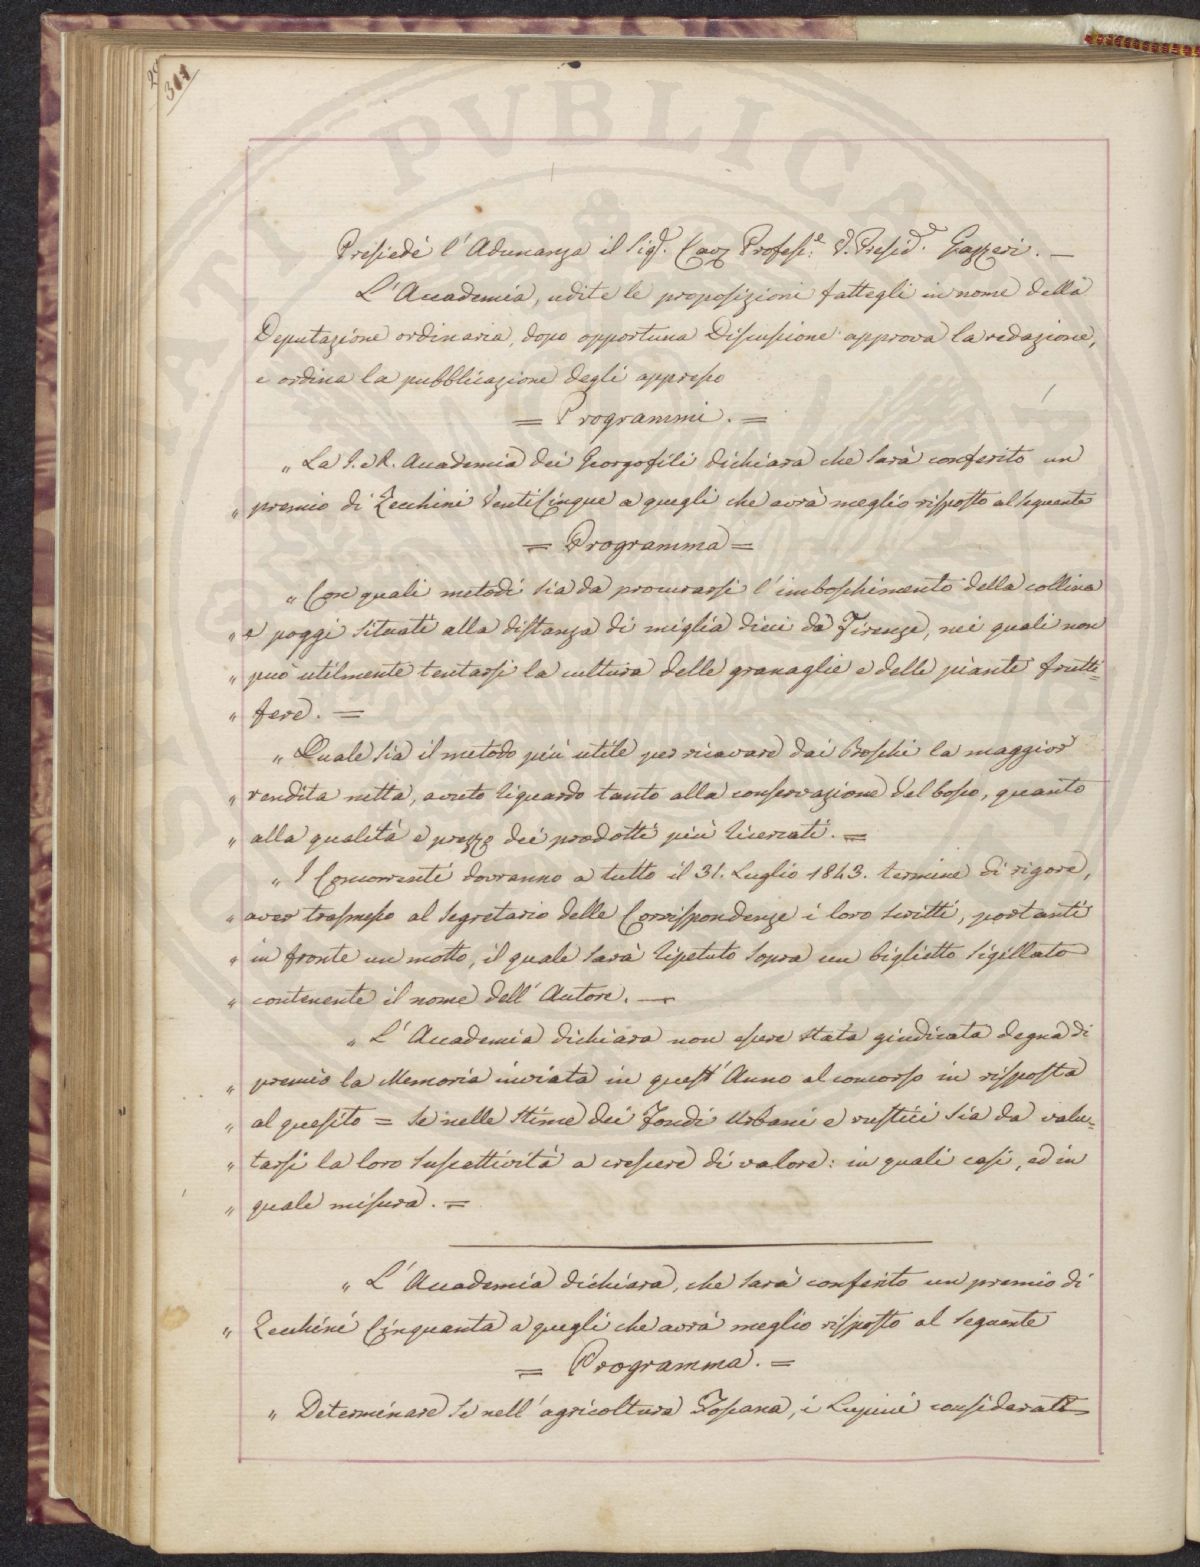 311
Presiedè l'Adunanza il Sig.r Cav. Profess.e V. Presid.e Gazzeri. —
L'Accademia, udite le proposizioni fattegli in nome della
Deputazione ordinaria, dopo opportuna Discussione approva la redazione,
e ordina la pubblicazione degli appresso
= Programmi. =
„ La I. e R. Accademia dei Georgofili dichiara che sarà conferito un
„ premio di Zecchini VentiCinque a quegli che avrà meglio risposto al seguente
= Programma =
„ Con quali metodi sia da procurarsi l'imboschimento della collina
„ e poggi situati alla distanza di miglia dieci da Firenze, nei quali non
„ può utilmente tentarsi la cultura delle granaglie e delle piante frutti=
„ fere. =
„ Quale sia il metodo più utile per ricavare dai Boschi la maggior
„ rendita netta, avuto riguardo tanto alla conservazione del bosco, quanto
„ alla qualità e prezzo dei prodotti più ricercati. =
„ I Concorrenti dovranno a tutto il 31. Luglio 1843. termine di rigore,
„ aver trasmesso al Segretario delle Corrispondenze i loro scritti, portanti
„ in fronte un motto, il quale sarà ripetuto sopra un biglietto sigillato
„ contenente il nome dell'Autore. —
„ L'Accademia dichiara non essere stata giudicata degna di
„ premio la Memoria inviata in quest'Anno al concorso in risposta
„ al quesito = Se nelle stime dei Fondi Urbani e rustici sia da valu=
„ tarsi la loro suscettività a crescere di valore: in quali casi, ed in
„ quale misura. =
„ L'Accademia dichiara, che sarà conferito un premio di
„ Zecchini Cinquanta a quegli che avrà meglio risposto al seguente
= Programma. =
„ Determinare se nell'agricoltura Toscana, i Lupini considerati
PVBLICAE